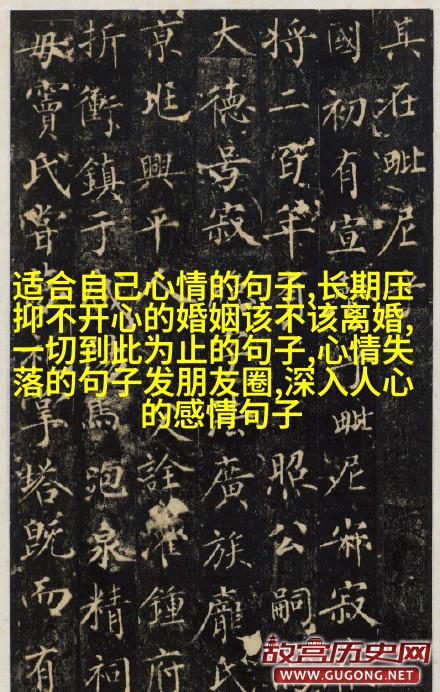 其在毗尼
國初有宣
毗尼
寂
將二百年
照公嗣
大德号寂
廣族龐氏
京兆興平
人詮
鍾府
折衝鎮于
馬跑泉精祠
毋竇氏嘗
掌塔既而有
适合自己心情的句子,长期压
抑不开心的婚姻该不该离婚,
一切到此为止的句子,心情失
落的句子发朋友圈,深入人心
的感情句子
故宫历史网
WWW.GUGONG.NET